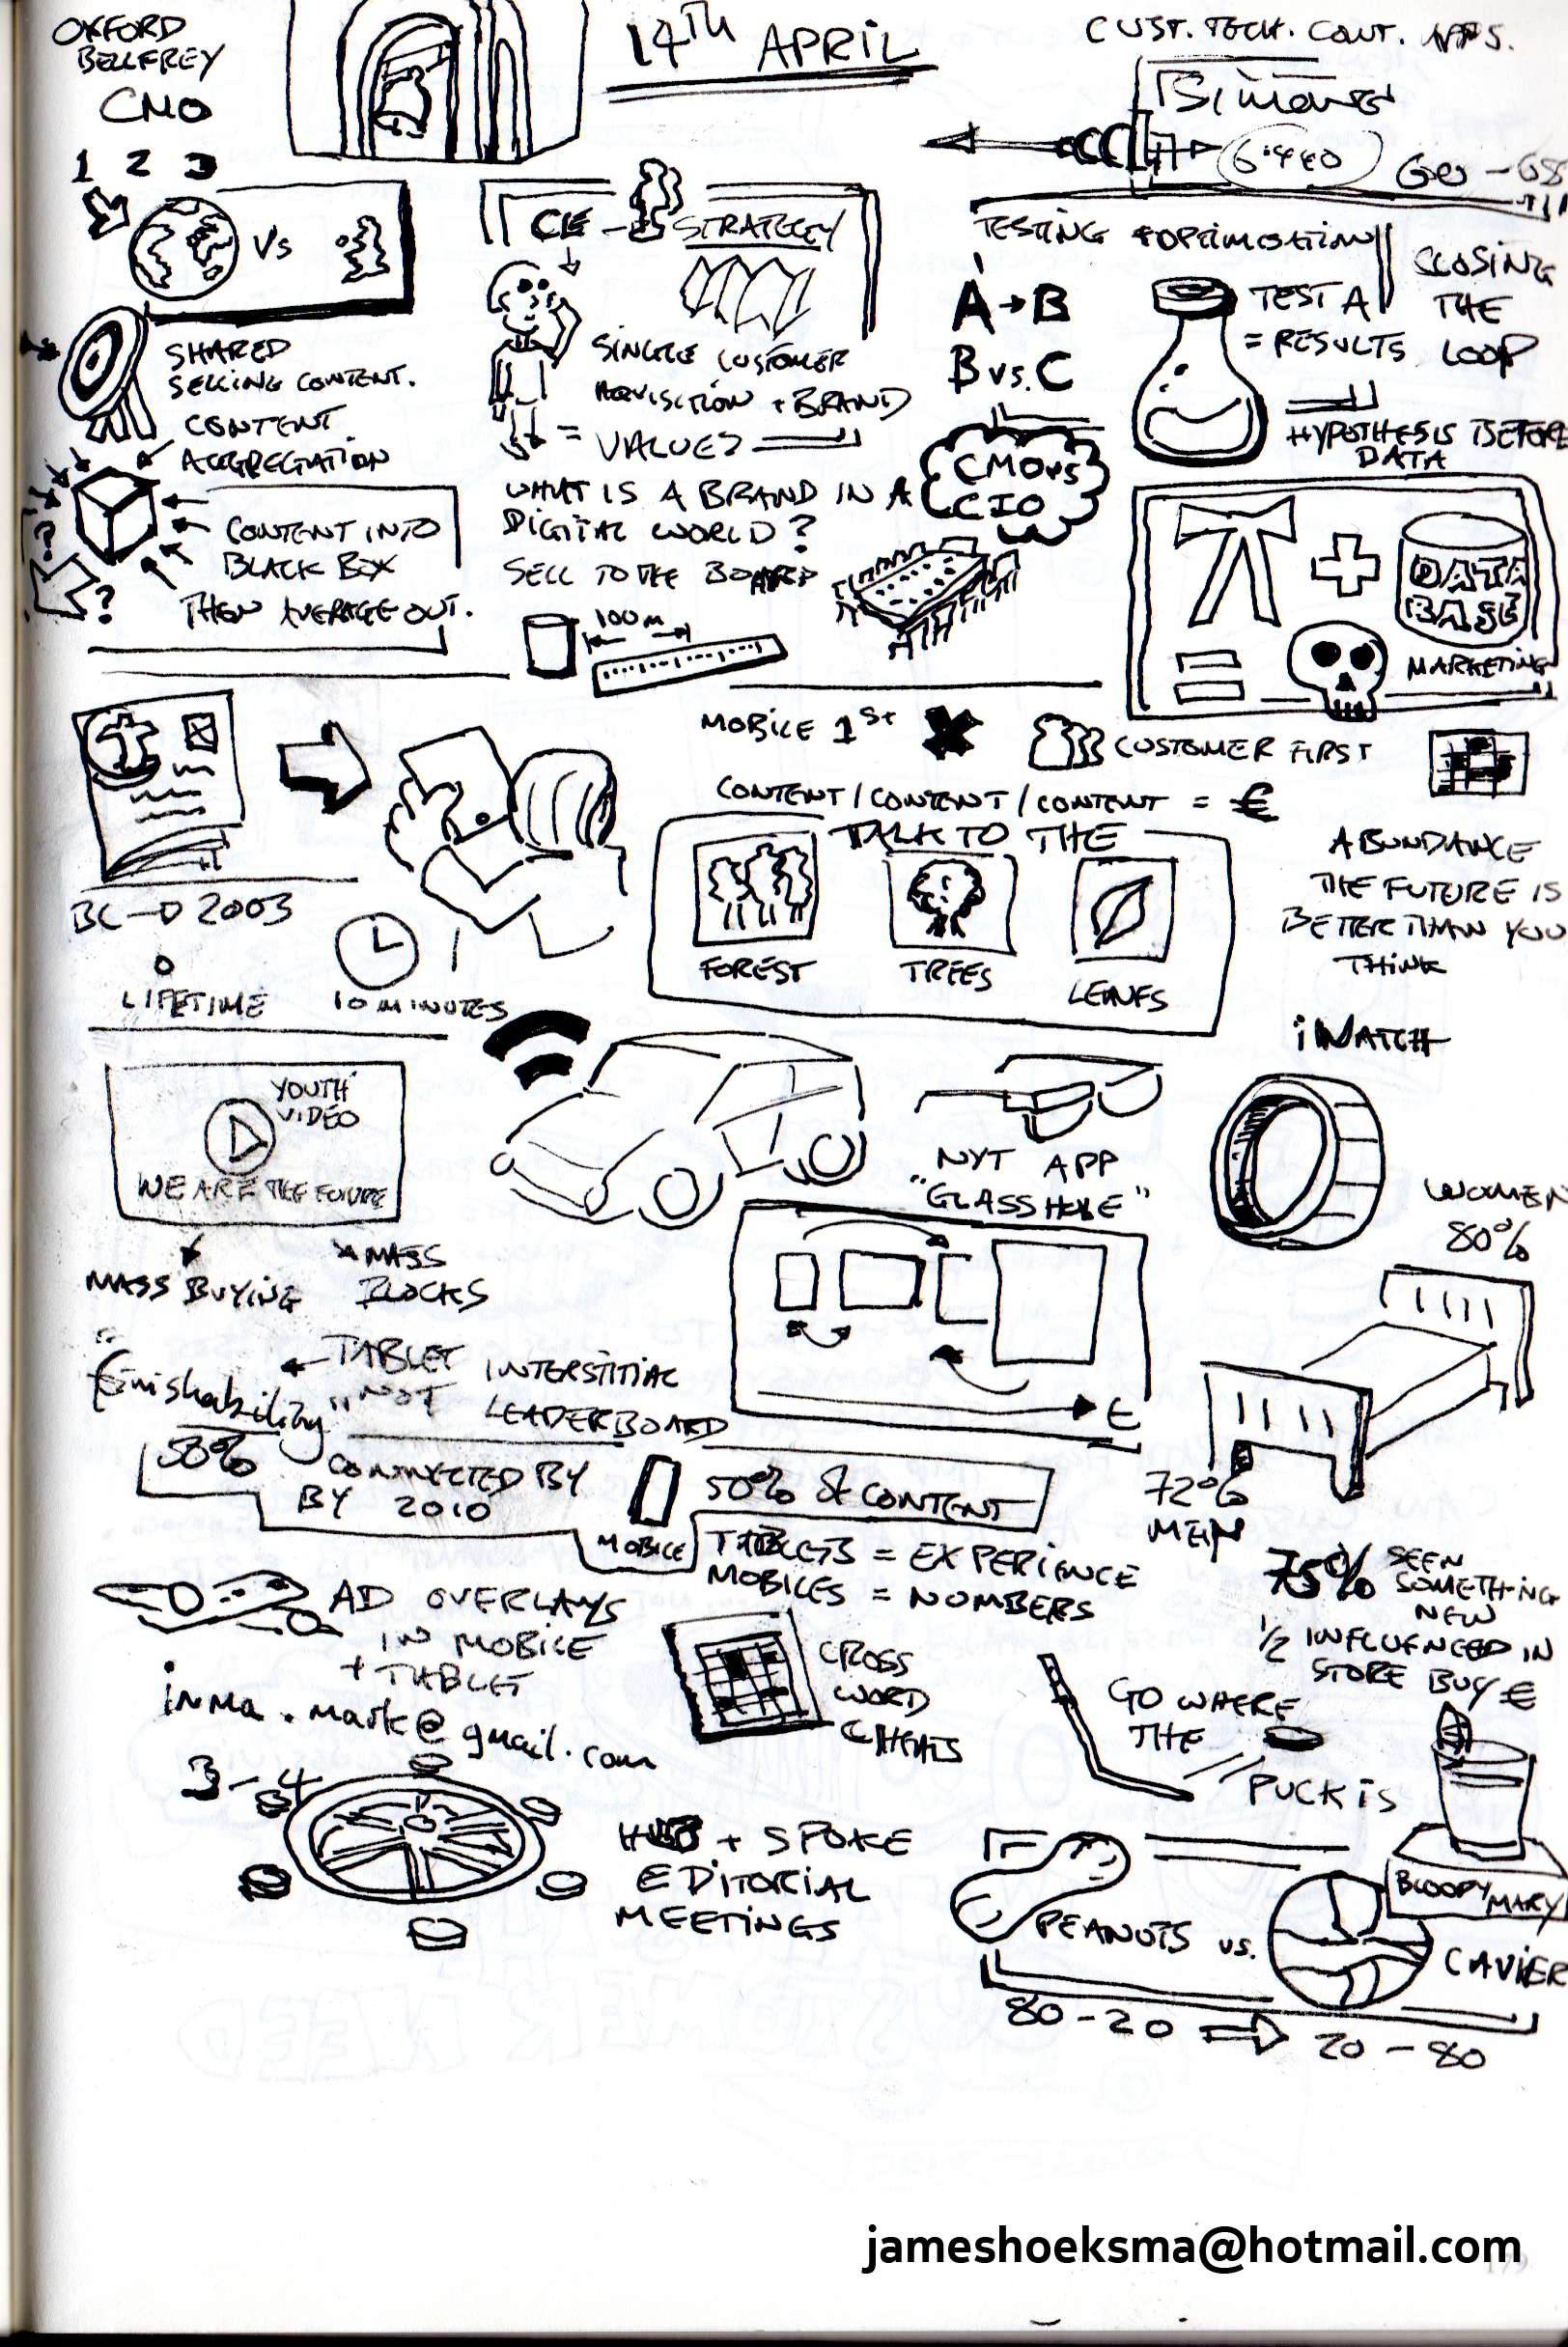 OXFORD
BELLFREY
CMO
1 2 3
14TH APRIL
CUST. TECH. CONT. APPS.
Simons
6.440
GO - 68
VS
SHARED
SELLING CONTENT.
CONTENT
AGGREGATION
CONTENT INTO
BLACK BOX
THEN AVERAGE OUT.
?
?
CIE - STRATEGY
SINGLE CUSTOMER
AQUISITION + BRAND
= VALUES
WHAT IS A BRAND IN A
DIGITAL WORLD?
SELL TO THE BOARD
100M
CMO vs
CIO
TESTING + OPTIMISATION
A → B
B vs. C
TEST A
= RESULTS
CLOSING
THE
LOOP
HYPOTHESIS BEFORE
DATA
+
DATA
BASE
=
MARKETING
MOBILE 1st
CUSTOMER FIRST
CONTENT / CONTENT / CONTENT = €
TALK TO THE
FOREST
TREES
LEAVES
ABUNDANCE
THE FUTURE IS
BETTER THAN YOU
THINK
BC → 2003
LIFETIME
10 MINUTES
YOUTH
VIDEO
WE ARE THE FUTURE
MASS BUYING
MASS
BLOCKS
NYT APP
"GLASSHOLE"
iWATCH
WOMEN
80%
"finishability"
← TABLET INTERSTITIAL
NOT LEADERBOARD
t
72%
MEN
50%
CONNECTED BY
BY 2010
MOBILE
50% of CONTENT
TABLETS = EXPERIENCE
MOBILES = NOMBERS
75% SEEN
SOMETHING
NEW
1/2 INFLUENCED IN
STORE BUY €
AD OVERLAYS
IN MOBILE
+ TABLET
inma.mark@gmail.com
CROSS
WORD
CHEATS
GO WHERE
THE
PUCK IS
BLOODY MARY
3 - 4
HUB + SPOKE
EDITORIAL
MEETINGS
PEANUTS vs.
CAVIER
80 - 20 ⇒ 20 - 80
jameshoeksma@hotmail.com
179